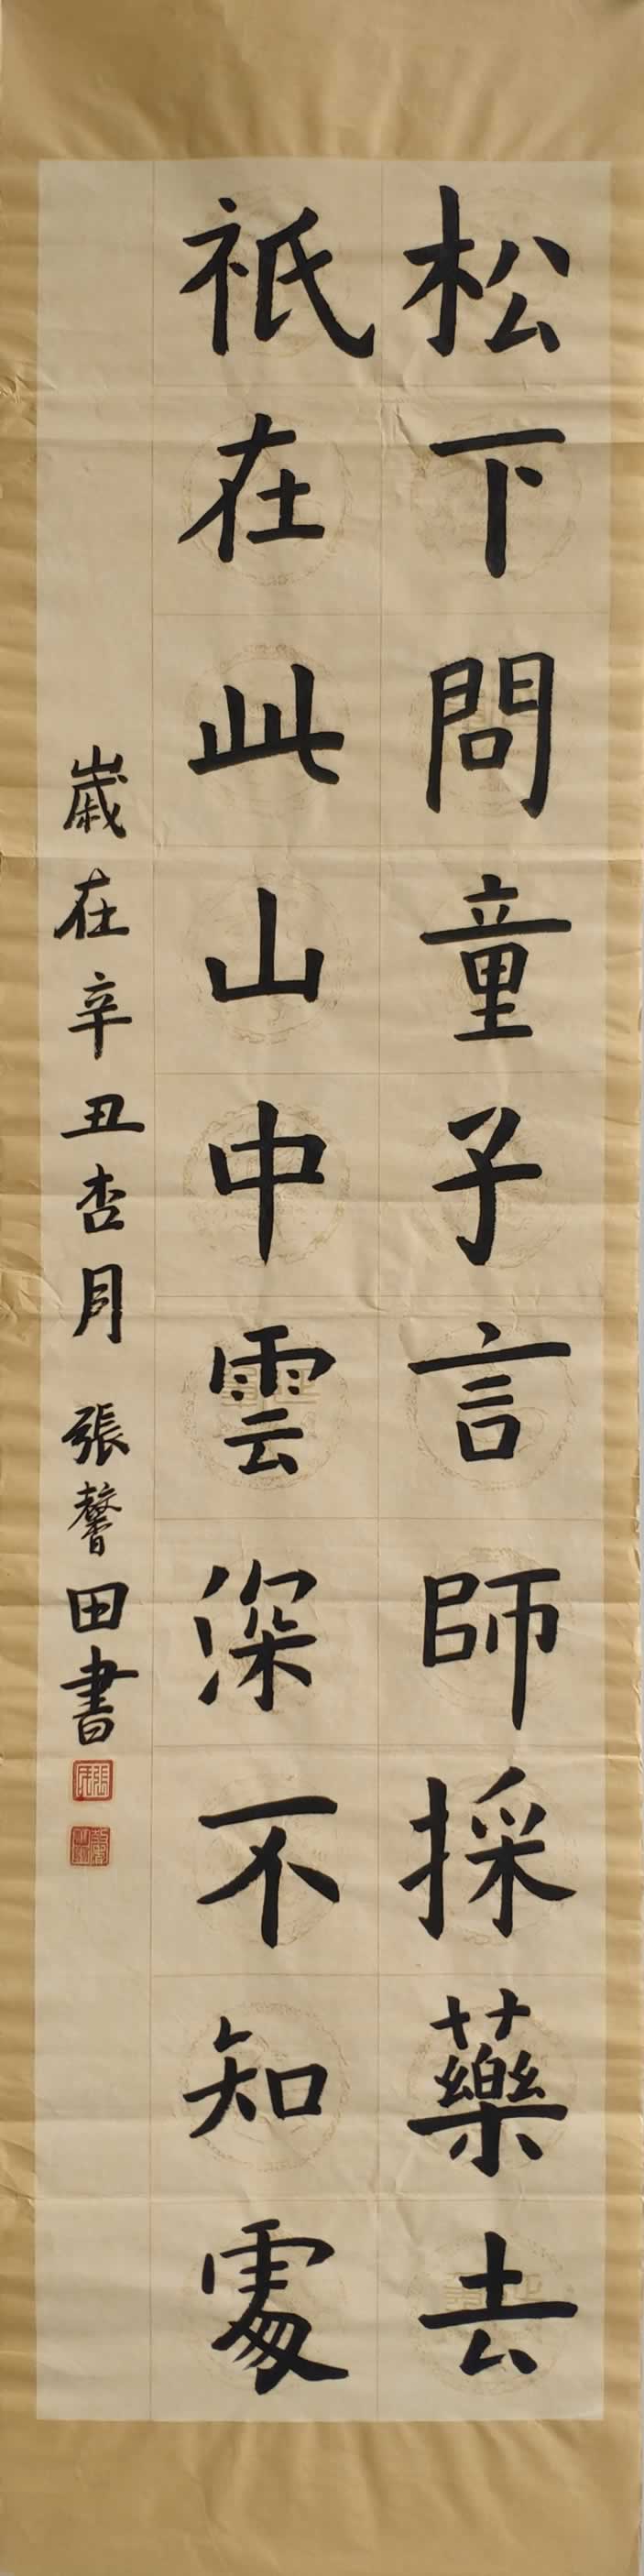 松下問童子言師採藥去
祇在此山中雲深不知處
歲在辛丑杏月 張馨田書